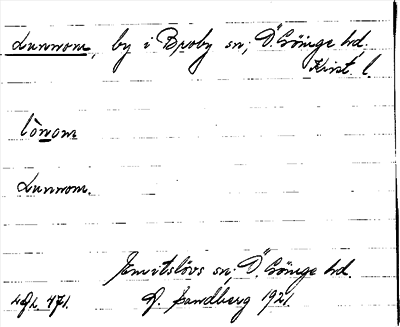 Lunnom, by i Broby sn; Ö. Göinge hd.
Krist. l.
lònom
Lunnom.
Emitslövs sn; Ö. Göinge hd.
Sandberg 1921.